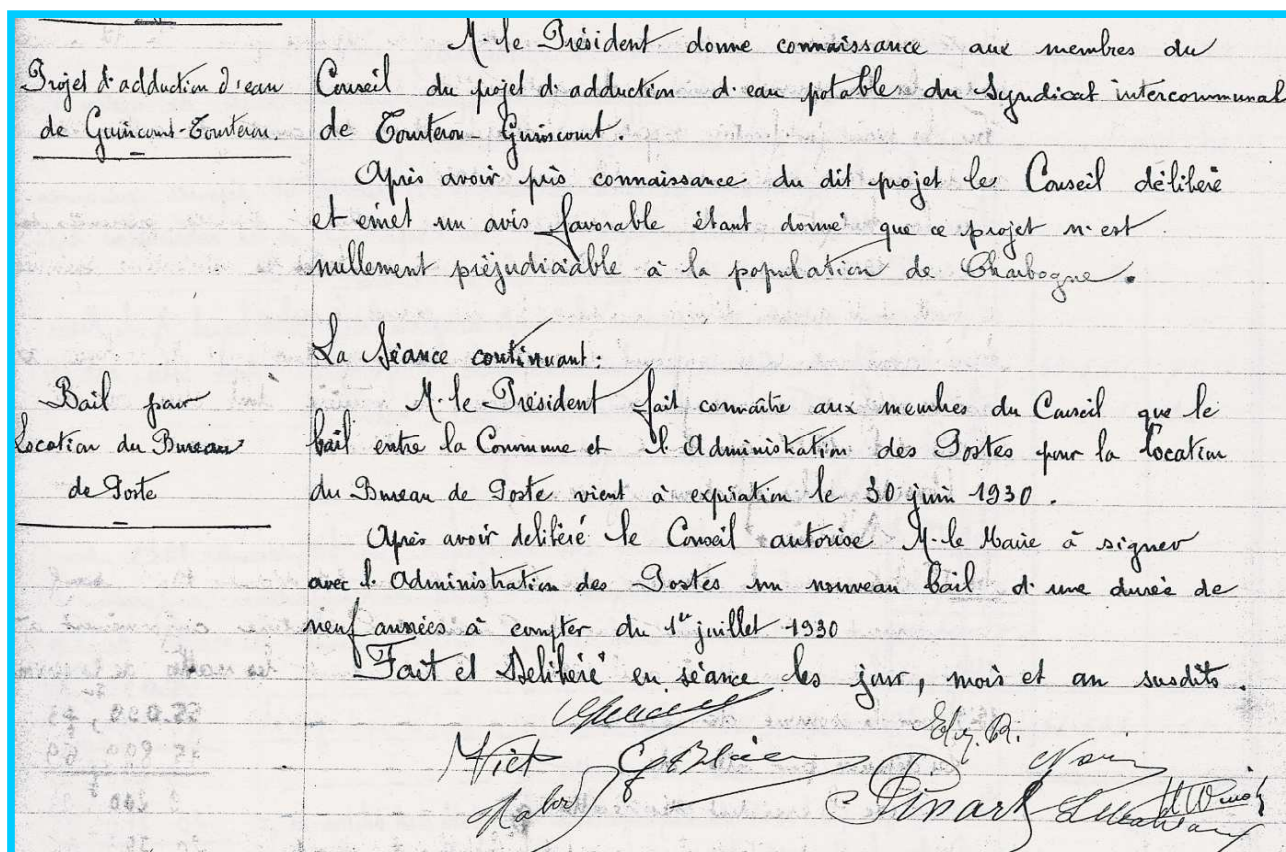 M. le Président donne connaissance aux membres du
Projet d'adduction d'eau
de Guincourt-Tourteron.
Conseil du projet d'adduction d'eau potable du Syndicat intercommunal
de Tourteron-Guincourt.
Après avoir pris connaissance du dit projet le Conseil délibère
et émet un avis favorable étant donné que ce projet n'est
nullement préjudiciable à la population de Charbogne.
La Séance continuant :
Bail pour
Location du Bureau
de Poste
M. le Président fait connaître aux membres du Conseil que le
bail entre la Commune et l'Administration des Postes pour la location
du Bureau de Poste vient à expiration le 30 juin 1930.
Après avoir délibéré le Conseil autorise M. le Maire à signer
avec l'Administration des Postes un nouveau bail d'une durée de
neuf années à compter du 1er juillet 1930
Fait et Délibéré en séance les jour, mois et an susdits.
Pinard